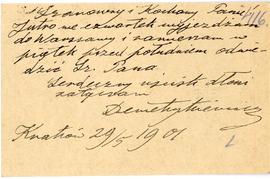 Szanowny i Kochany Panie
Jutro we czwartek wyjeżdżam
do Warszawy i zamierzam w
piątek przed południem odwie-
dzić Sz. Pana
Serdeczny uścisk dłoni
załączam
Demetrykiewicz
Kraków 29/5 1901